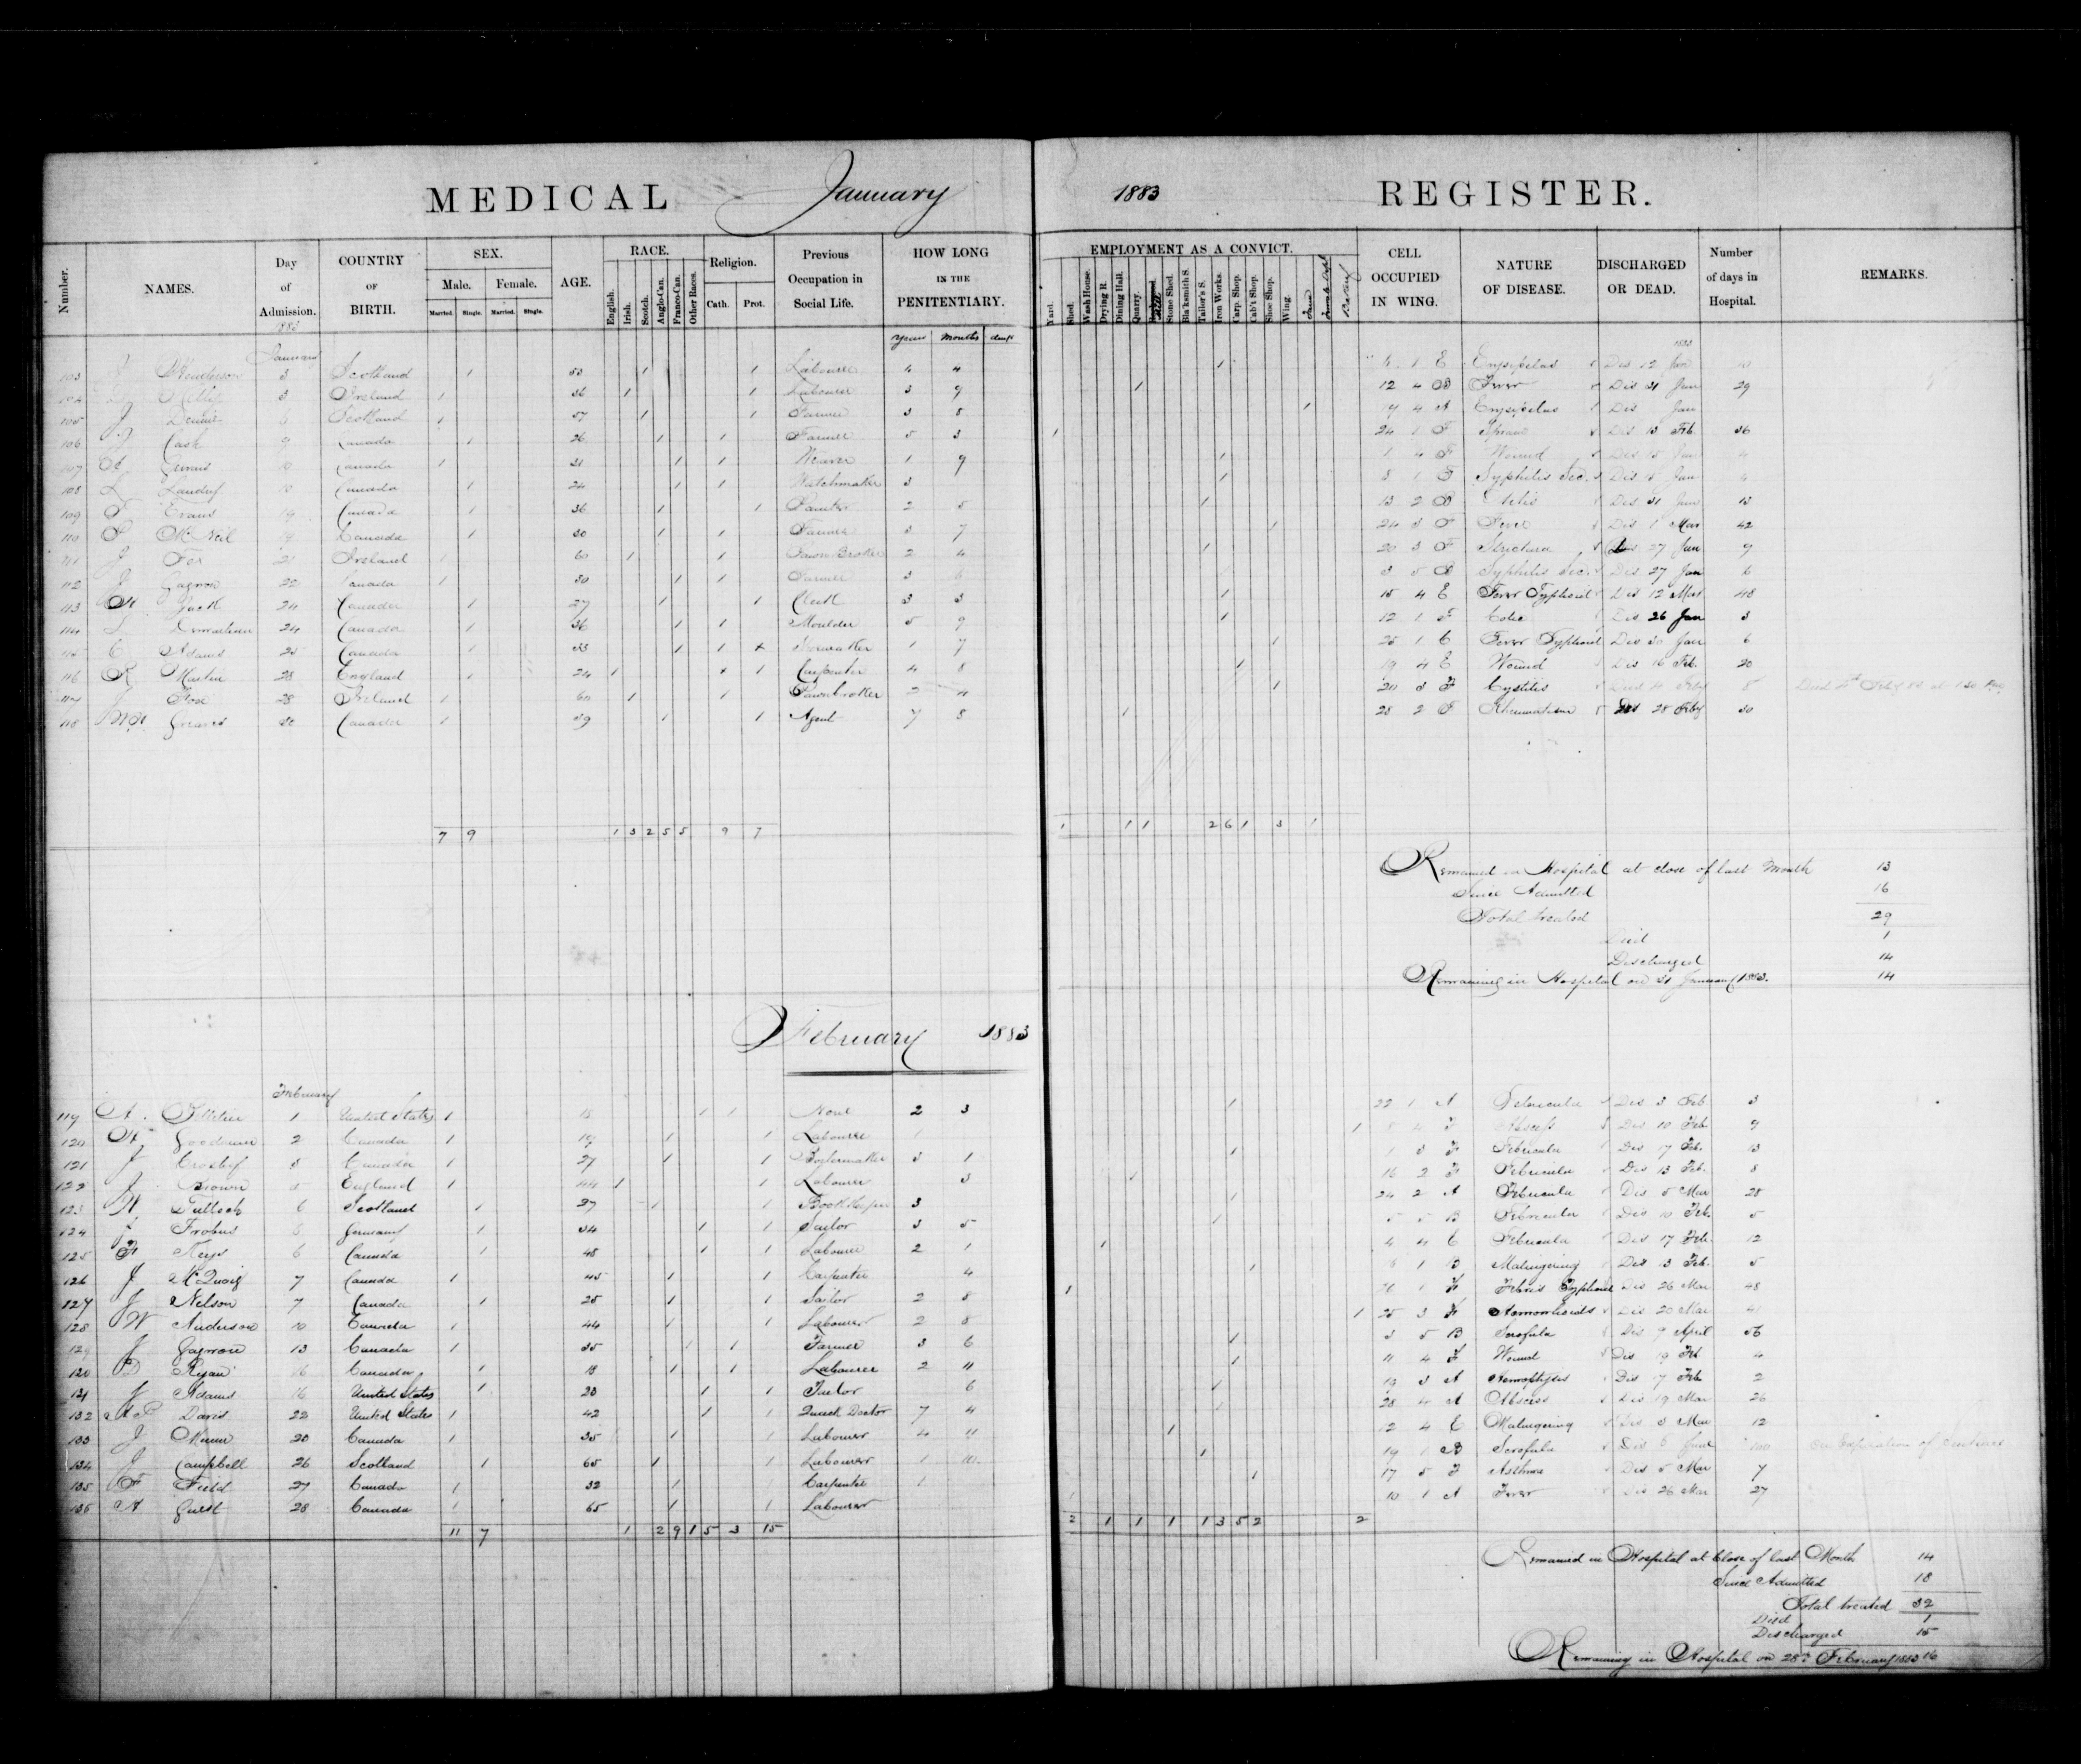 MEDICAL January 1883 REGISTER.
Number. NAMES. Day of Admission. COUNTRY OF BIRTH. SEX. Male. Female. Married. Single. Married. Single. AGE. RACE. English. Irish. Scotch. Anglo-Can. Franco-Can. Other Races. Religion. Cath. Prot. Previous Occupation in Social Life. HOW LONG IN THE PENITENTIARY. EMPLOYMENT AS A CONVICT. Yard. Shed. Wash House. Drying R. Dining Hall. Quarry. Stone Shed. Bla'ksmith S. Tailor's S. Iron Works. Carp. Shop. Cab't Shop. Shoe Shop. Wing. CELL OCCUPIED IN WING. NATURE OF DISEASE. DISCHARGED OR DEAD. Number of days in Hospital. REMARKS.
years months days
1883
January
103 J Henderson 3 Scotland 1 53 1 1 Labourer 4 4 1 1 E Erysipelas Dis 12 Jan 10
104 3 Ireland 1 36 1 1 Labourer 3 9 1 12 4 B Fever Dis 31 Jan 29
105 J 6 Scotland 1 57 1 1 Farmer 3 8 1 19 4 A Erysipelas Dis Jan
106 J Cash 9 Canada 1 26 1 1 Farmer 5 3 1 24 1 F Dis 13 Feb 36
107 Gervais 10 Canada 1 31 1 1 Weaver 1 9 1 1 4 F Wound Dis 15 Jan 4
108 L Landry 10 Canada 1 24 1 1 Watchmaker 3 1 8 1 Syphilis Sec. Dis Jan
109 F Evans 19 Canada 1 36 1 1 Painter 2 5 1 13 2 B Dis 31 Jan 13
110 McNeil 19 Canada 1 30 1 1 Farmer 3 7 1 24 3 F Fever Dis 1 Mar 42
111 J Fox 21 Ireland 1 60 1 1 Pawn Broker 2 4 1 20 3 F Stricture Dis 27 Jan 9
112 E Gagnon 22 Canada 1 30 1 1 Farmer 3 6 3 5 B Syphilis Sec. Dis 27 Jan 6
113 Jack 24 Canada 1 27 1 1 Clerk 3 3 1 15 4 E Fever Typhoid Dis 12 Mar 48
114 24 Canada 1 36 1 1 Moulder 5 9 1 12 1 F Colic Dis 26 Jan 3
115 C Adams 25 Canada 1 33 1 1 x Shoemaker 1 7 1 25 1 C Fever Typhoid Dis 30 Jan 6
116 R Martin 28 England 1 24 1 x 1 Carpenter 4 8 1 19 4 E Wound Dis 16 Feb. 20
117 J Fox 28 Ireland 1 60 1 1 Pawnbroker 2 4 1 20 3 F Cystitis Died 4 Feby 8
118 Graves 30 Canada 1 39 1 1 Agent 7 8 1 28 2 F Rheumatism Dis 28 Feby 30
7 9 1 3 2 5 5 9 7 1 1 1 2 6 1 3 1
Remained in Hospital at close of last Month 13
Since Admitted 16
Total treated 29
Died 1
Discharged 14
Remaining in Hospital on 31 January 1883. 14
February 1883
February
119 A. 1 United States 1 1 1 None 2 3 1 22 1 A Febricula Dis 3 Feb 3
120 Goodman 2 Canada 1 19 1 1 Labourer 1 1 8 4 F Abscess Dis 10 Feb 9
121 J Crosby 5 Canada 1 27 1 1 Boilermaker 3 1 1 1 3 F Febricula Dis 17 Feb. 13
122 J Brown 5 England 1 44 1 1 Labourer 3 1 16 2 F Febricula Dis 13 Feb. 8
123 Tulloch 6 Scotland 1 37 1 1 Book Keeper 3 1 24 2 A Febricula Dis 5 Mar 28
124 Frobus 6 Germany 1 34 1 1 Sailor 3 5 1 5 5 B Febricula Dis 10 Feb. 5
125 Keys 6 Canada 1 48 1 1 Labourer 2 1 1 4 4 C Febricula Dis 17 Feb. 12
126 J McQuaig 7 Canada 1 45 1 1 Carpenter 4 1 1 B Malingering Dis 13 Feb. 5
127 J Nelson 7 Canada 1 25 1 1 Sailor 2 8 1 1 F Febris Typhoid Dis 26 Mar 48
128 W Anderson 10 Canada 1 44 1 1 Labourer 2 8 1 25 3 F Hemorrhoids Dis 20 Mar
129 J Gagnon 13 Canada 1 35 1 1 Farmer 3 6 1 3 5 B Scrofula Dis 9 April 56
130 D Ryan 16 Canada 1 18 1 1 Labourer 2 11 1 11 4 F Wound Dis 19 Feb 4
131 J Adams 16 United States 1 28 1 1 Tailor 6 1 19 3 A Hemoptysis Dis 17 Feb 2
132 A P Davis 22 United States 1 42 1 1 Quack Doctor 7 4 1 28 4 A Abscess Dis 19 Mar 26
133 J 20 Canada 1 35 1 1 Labourer 4 11 1 12 4 E Malingering Dis 3 Mar 12
134 J Campbell 26 Scotland 1 65 1 1 Labourer 1 10 1 19 1 B Scrofula Dis 6 June On Expiration of Sentence
135 F Field 27 Canada 1 32 1 Carpenter 1 1 17 5 F Asthma Dis 5 Mar 7
136 A Guest 28 Canada 1 65 1 1 Labourer 1 10 1 A Fever Dis 26 Mar 27
11 7 1 2 9 1 5 3 15 2 1 1 1 1 3 5 2 2
Remained in Hospital at Close of last Month 14
Since Admitted 18
Total treated 32
Died 1
Discharged 15
Remaining in Hospital on 28th February 1883 16